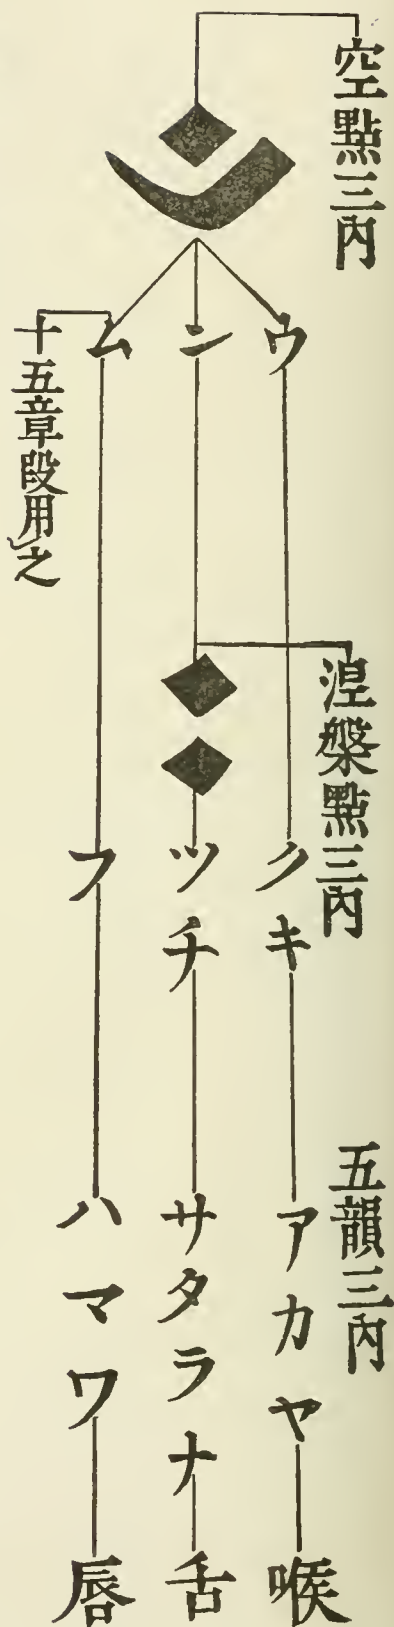 空點三內
ウ
ン
ム
十五章段用之
涅槃點三內
クキ
ツチ
フ
五韻三內
アカヤ
サタラナ
ハマワ
喉
舌
唇